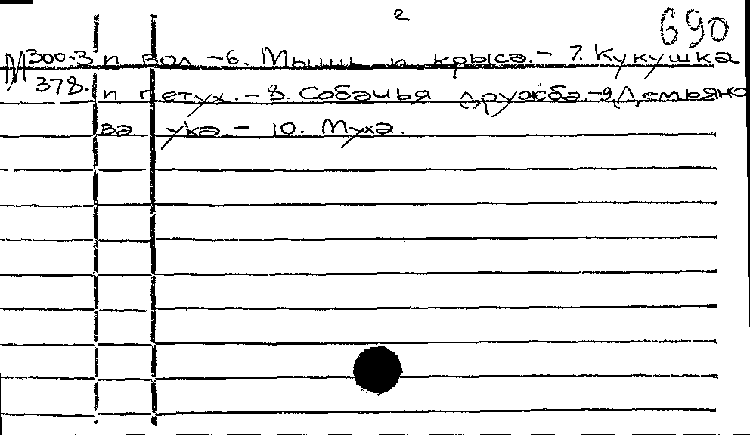 2
690
М 300-3 и вол - 6. Мышь и крыса. - 7. Кукушка
378. и петух. - 8. Собачья дружба. - 9. Демьяно
ва уха - 10. Муха.